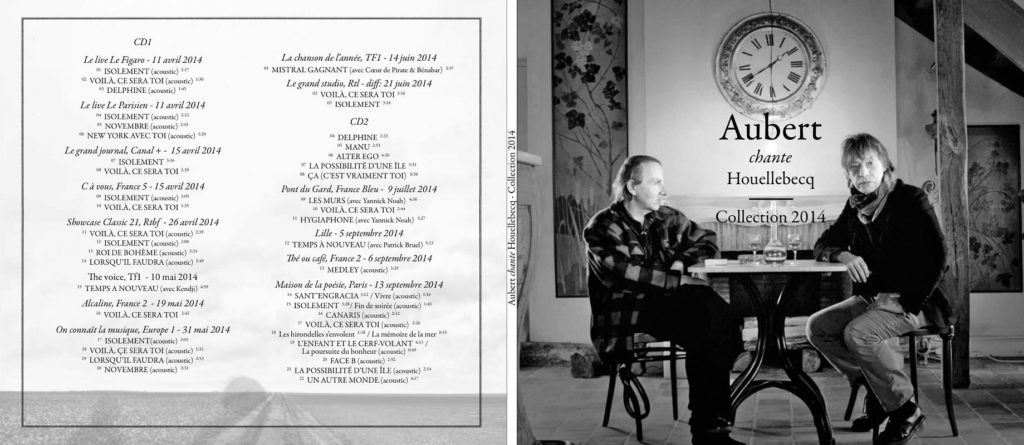 CD1
Le live Le Figaro - 11 avril 2014
01 ISOLEMENT (acoustic) 2:17
02 VOILÀ, CE SERA TOI (acoustic) 1:30
03 DELPHINE (acoustic) 1:45
Le live Le Parisien - 11 avril 2014
04 ISOLEMENT (acoustic) 2:12
05 NOVEMBRE (acoustic) 2:45
06 NEW YORK AVEC TOI (acoustic) 1:20
Le grand journal, Canal + - 15 avril 2014
07 ISOLEMENT 3:16
08 VOILÀ, CE SERA TOI (acoustic) 2:39
C à vous, France 5 - 15 avril 2014
09 ISOLEMENT (acoustic) 2:05
10 VOILÀ, CE SERA TOI (acoustic) 3:35
Showcase Classic 21, Rtbf - 26 avril 2014
11 VOILÀ, CE SERA TOI (acoustic) 2:39
12 ISOLEMENT (acoustic) 2:06
13 ROI DE BOHÈME (acoustic) 3:24
14 LORSQU'IL FAUDRA (acoustic) 2:49
The voice, Tf1 - 10 mai 2014
15 TEMPS A NOUVEAU (avec Kendji) 4:59
Alcaline, France 2 - 19 mai 2014
16 VOILÀ, CE SERA TOI (acoustic) 2:42
On connait la musique, Europe 1 - 31 mai 2014
17 ISOLEMENT(acoustic) 2:03
18 VOILÀ, ÇE SERA TOI (acoustic) 2:32
19 LORSQU'IL FAUDRA (acoustic) 2:53
20 NOVEMBRE (acoustic) 2:31
La chanson de l'année, TF1 - 14 juin 2014
01 MISTRAL GAGNANT (avec Cœur de Pirate & Bénabar) 2:57
Le grand studio, Rtl - diff: 21 juin 2014
02 VOILÀ, CE SERA TOI 3:18
03 ISOLEMENT 3:16
CD2
04 DELPHINE 2:23
05 MANU 2:55
06 ALTER EGO 4:10
07 LA POSSIBILITÉ D'UNE ÎLE 3:51
08 ÇA (C'EST VRAIMENT TOI) 6:56
Pont du Gard, France Bleu - 9 juillet 2014
09 LES MURS (avec Yannick Noah) 4:16
10 VOILÀ, CE SERA TOI 2:44
11 HYGIAPHONE (avec Yannick Noah) 5:27
Lille - 5 septembre 2014
12 TEMPS À NOUVEAU (avec Patrick Bruel) 5:13
Thé ou café, France 2 - 6 septembre 2014
13 MEDLEY (acoustic) 3:29
Maison de la poésie, Paris - 13 septembre 2014
14 SANT'ENGRACIA 3:12 / Vivre (acoustic) 1:16
15 ISOLEMENT 3:28 / Fin de soirée (acoustic) 1:45
16 CANARIS (acoustic) 2:12
17 VOILÀ, CE SERA TOI (acoustic) 3:26
18 Les hirondelles s'envolent 1:18 / La mémoire de la mer 0:55
19 L'ENFANT ET LE CERF-VOLANT 4:33 /
La poursuite du bonheur (acoustic) 0:49
20 FACE B (acoustic) 2:52
21 LA POSSIBILITÉ D'UNE ÎLE (acoustic) 2:14
22 UN AUTRE MONDE (acoustic) 4:17
Aubert chante Houellebecq - Collection 2014
Aubert
chante
Houellebecq
Collection 2014